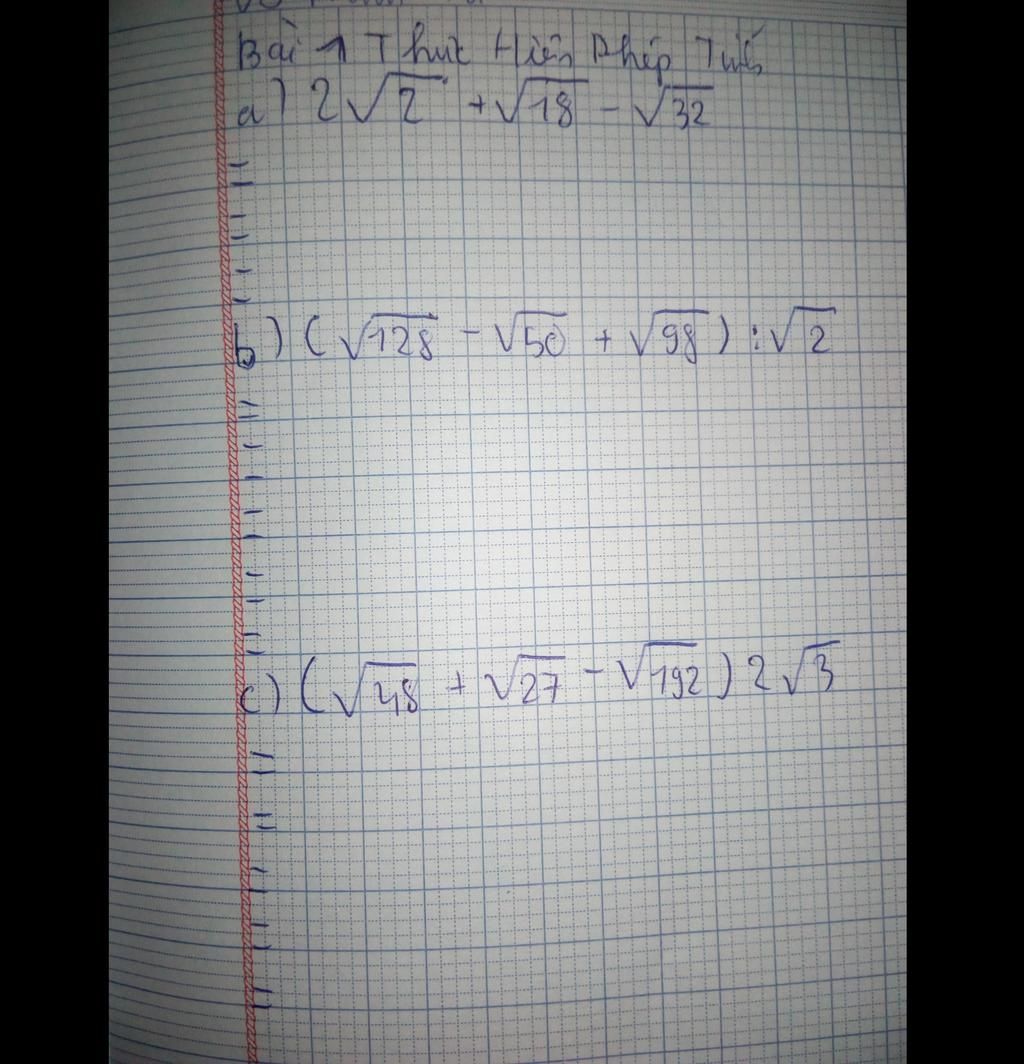 Bài 1 Thực Hiện Phép Tính
a) 2√2 + √18 - √32
=
=
=
b) (√128 - √50 + √98) : √2
=
=
=
=
=
c) (√48 + √27 - √192) 2√3
=
=
=
=
=